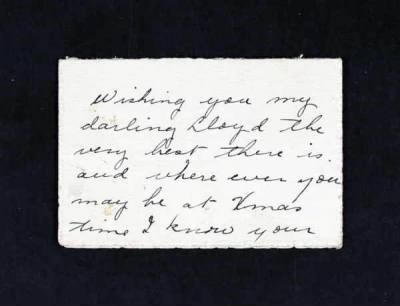 Wishing you my
darling Lloyd the
very best there is.
and where ever you
may be at Xmas
time I know your